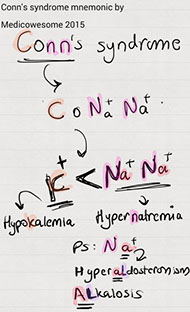 Conn's syndrome mnemonic by
Medicowesome 2015
Conn's syndrome
C o Na+ Na+
K+ < Na+ Na+
Hypokalemia Hypernatremia
Ps: Na+
Hyperaldosteronism
ALkalosis